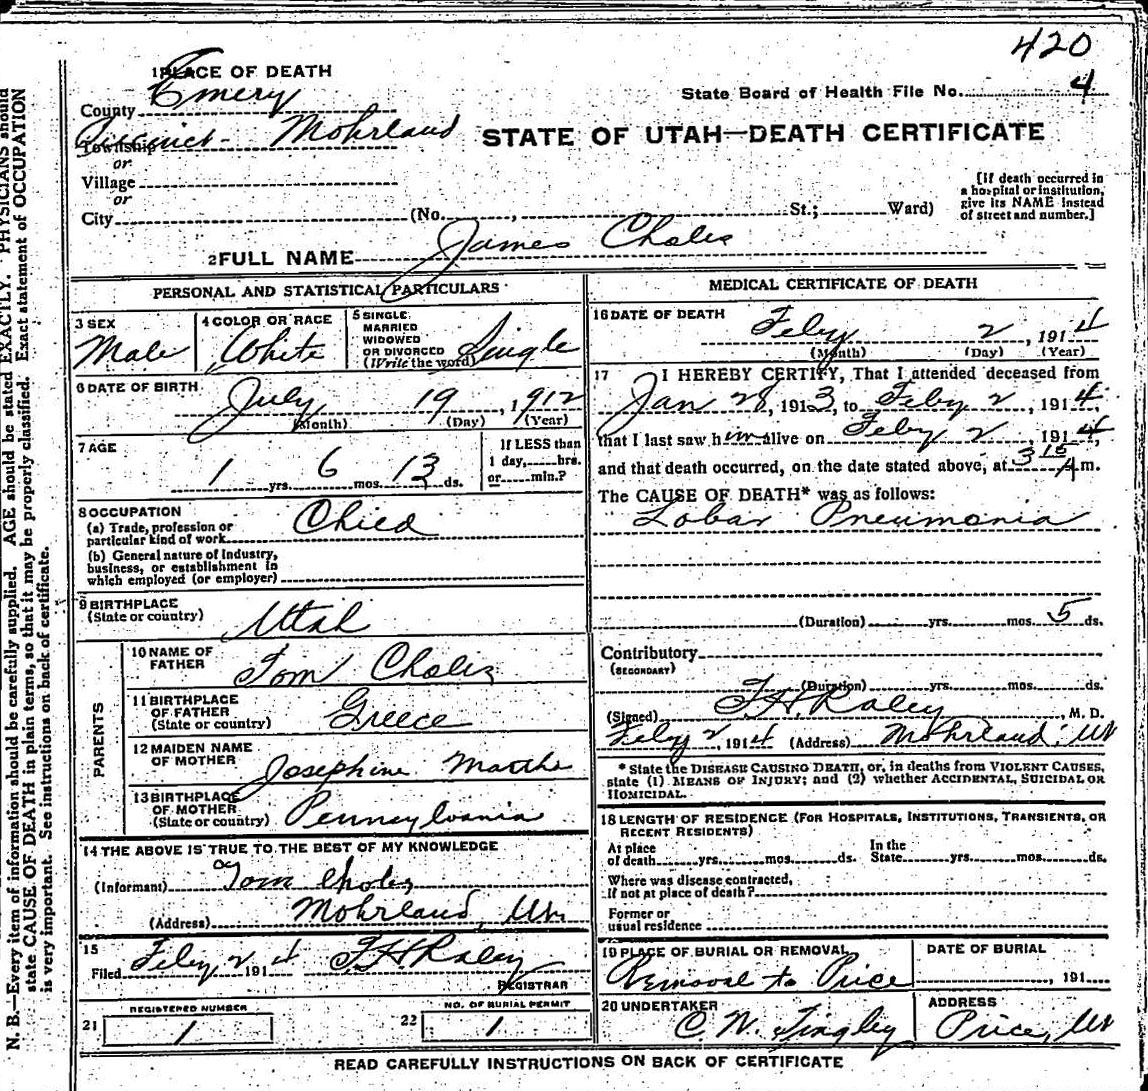 420
1 PLACE OF DEATH
State Board of Health File No. 4
County Emery
Township District- Mohrland
STATE OF UTAH—DEATH CERTIFICATE
or
Village
or
City (No. , St.; Ward)
[If death occurred in
a hospital or institution,
give its NAME instead
of street and number.]
2 FULL NAME James Choles
PERSONAL AND STATISTICAL PARTICULARS
3 SEX
Male
4 COLOR OR RACE
White
5 SINGLE
MARRIED
WIDOWED
OR DIVORCED
(Write the word) Single
6 DATE OF BIRTH
July 19, 1912
(Month) (Day) (Year)
7 AGE
1 yrs. 6 mos. 13 ds.
If LESS than
1 day, hrs.
or min.?
8 OCCUPATION
(a) Trade, profession or
particular kind of work Child
(b) General nature of industry,
business, or establishment in
which employed (or employer)
9 BIRTHPLACE
(State or country) Utah
PARENTS
10 NAME OF
FATHER Tom Choles
11 BIRTHPLACE
OF FATHER
(State or country) Greece
12 MAIDEN NAME
OF MOTHER
Josephine
13 BIRTHPLACE
OF MOTHER
(State or country) Pennsylvania
14 THE ABOVE IS TRUE TO THE BEST OF MY KNOWLEDGE
(Informant) Tom Choles
(Address) Mohrland, Ut
15
Filed Feby 2 1914 F. H. Raley
REGISTRAR
REGISTERED NUMBER
21 1
NO. OF BURIAL PERMIT
22 1
MEDICAL CERTIFICATE OF DEATH
16 DATE OF DEATH
Feby 2, 1914
(Month) (Day) (Year)
17 I HEREBY CERTIFY, That I attended deceased from
Jan 28, 1913, to Feby 2, 1914,
that I last saw him alive on Feby 2, 1914,
and that death occurred, on the date stated above, at 3 15 A.m.
The CAUSE OF DEATH* was as follows:
Lobar Pneumonia
(Duration) yrs. mos. 5 ds.
Contributory
(SECONDARY)
(Duration) yrs. mos. ds.
(Signed) F. H. Raley, M. D.
Feby 2, 1914 (Address) Mohrland, Ut
* State the DISEASE CAUSING DEATH, or, in deaths from VIOLENT CAUSES,
state (1) MEANS OF INJURY; and (2) whether ACCIDENTAL, SUICIDAL OR
HOMICIDAL.
18 LENGTH OF RESIDENCE (FOR HOSPITALS, INSTITUTIONS, TRANSIENTS, OR
RECENT RESIDENTS)
At place
of death yrs. mos. ds.
In the
State yrs. mos. ds.
Where was disease contracted,
if not at place of death?
Former or
usual residence
19 PLACE OF BURIAL OR REMOVAL
Removal to Price
DATE OF BURIAL
, 191
20 UNDERTAKER
C. W. Tingley
ADDRESS
Price, Ut
READ CAREFULLY INSTRUCTIONS ON BACK OF CERTIFICATE
N. B.—Every item of information should be carefully supplied. AGE should be stated EXACTLY. PHYSICIANS should
state CAUSE OF DEATH in plain terms, so that it may be properly classified. Exact statement of OCCUPATION
is very important. See instructions on back of certificate.